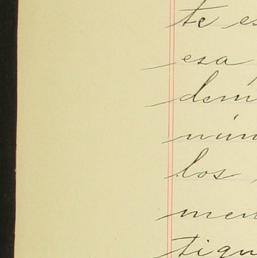 te es
esa
dem
núm
los
men
tigu